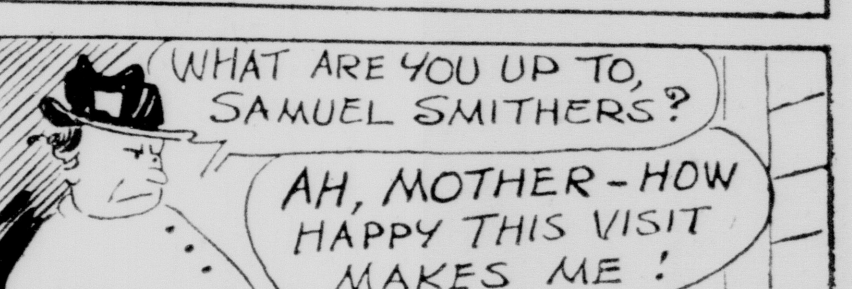 WHAT ARE YOU UP TO,
SAMUEL SMITHERS?
AH, MOTHER - HOW
HAPPY THIS VISIT
MAKES ME!